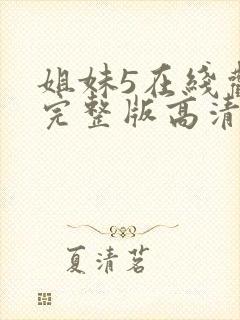 姐妹5在綫觀
完整版高清
夏清茗